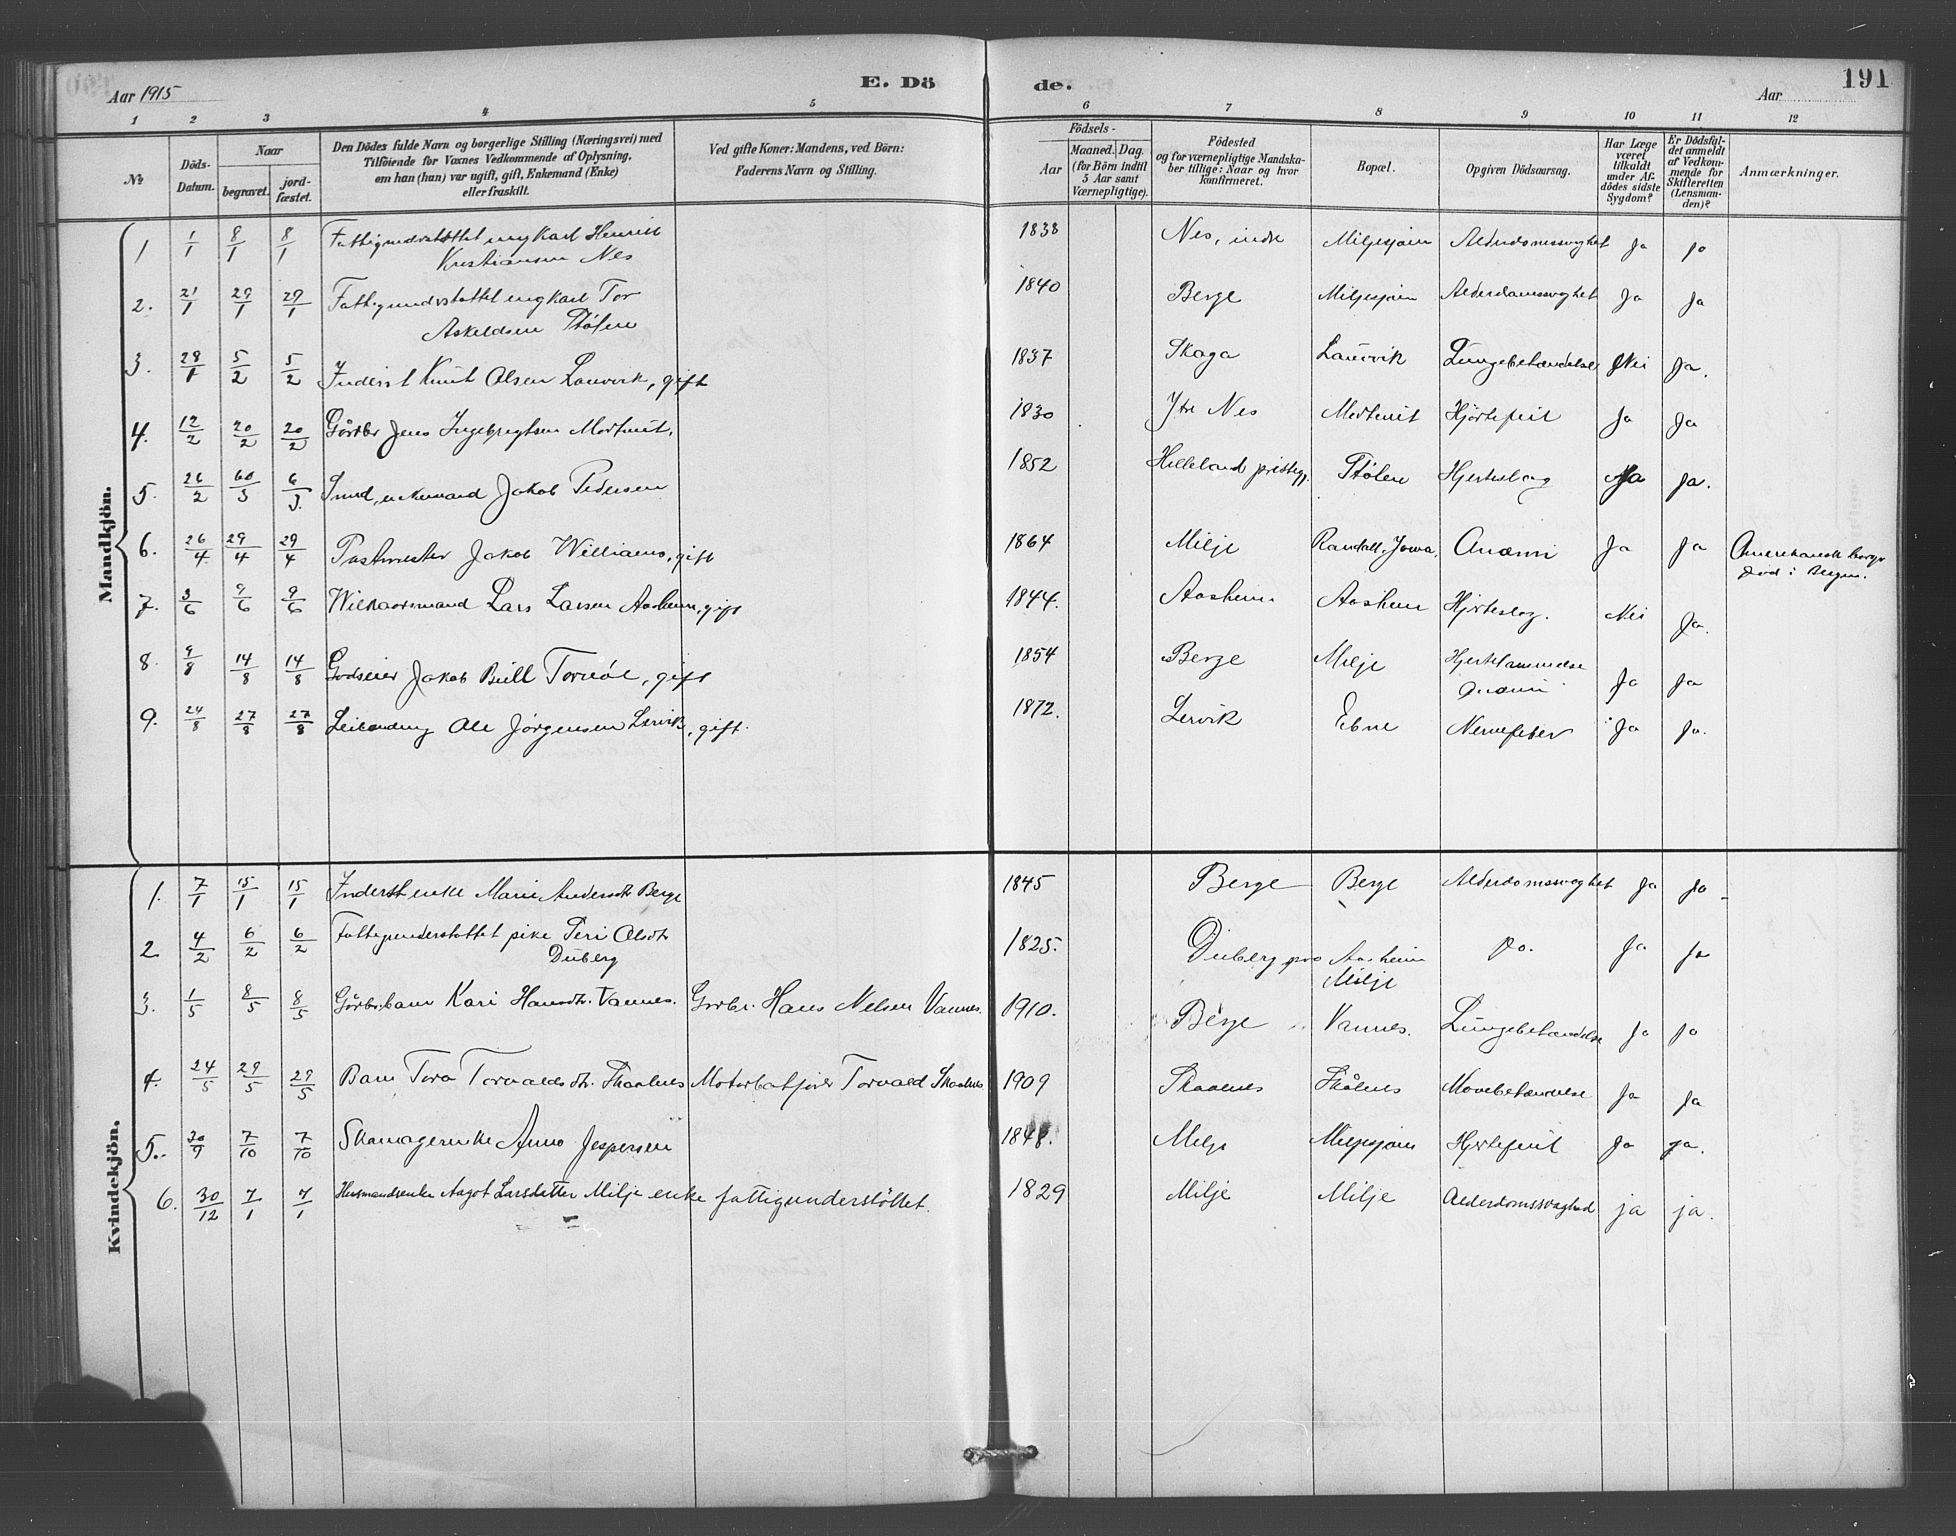 Aar 1915 E. Dö de. Aar 191
1 2 3 4 5 6 7 8 9 10 11 12
No Döds-Datum. Naar begravet. jord-fæstet. Den Dödes fulde Navn og borgerlige Stilling (Næringsvei) med Tilföiende for Voxnes Vedkommende af Oplysning, om han (hun) var ugift, gift, Enkemand (Enke) eller fraskilt. Ved gifte Koner: Mandens, ved Börn: Faderens Navn og Stilling. Födsels- Aar Maaned. Dag. (for Börn indtil 5 Aar samt Værnepligtige). Födested og for værnepligtige Mandskaber tillige: Naar og hvor konfirmeret. Bopæl. Opgiven Dödsaarsag. Har Læge været tilkaldt under Afdödes sidste Sygdom? Er Dödsfaldet anmeldt af Vedkommende for Skifteretten (Lensmanden)? Anmærkninger.
Mandkjön.
1 1/1 8/1 8/1 Fattigunderstøttet ungkarl Henrik 1838 Nes, indre Miljesjøen Alderdomssvaghet Ja Ja
Kristiansen Nes
2. 21/1 29/1 29/1 Fattigunderstøttet ungkarl Tor 1840 Berge Miljesjøen Alderdomssvaghet Ja Ja
Askeldsen Stølen
3. 28/1 5/2 5/2 Inderst Knut Olsen Laurvik, gift 1837 Skaga Laurvik Lungebetændelse Nei Ja.
4. 12/2 20/2 20/2 Gårdbr Jens Ingebrigtsen 1830 Ytre Nes Hjertefeil Ja Ja
5. 26/2 6/3 6/3. Smed, enkemand Jakob Pedersen 1852 Helleland prestegj. Stølen Hjerteslag Ja Ja.
6. 26/4 29/4 29/4 Postmester Jakob Williams, gift 1864 Milje Randall, Jowa, Anæmi Ja Ja Amerikansk borger
død i Bergen.
7. 3/6 9/6 9/6 Wilkaarsmand Lars Larsen Aasheim, gift 1844. Aasheim Aasheim Hjerteslag. Nei Ja.
8. 9/8 14/8 14/8 Godseier Jakob Bull Tornøe, gift 1854 Berge Milje Hjertelammelse
Anæmi Ja Ja
9. 24/8 27/8 27/8 Leilending Ole Jørgensen Lervik, gift. 1872. Lervik Ebne Nervefeber Ja Ja.
Kvindekjön.
1. 7/1 15/1 15/1 Inderst enke Marie Andersdtr Berge 1845 Berge Berge Alderdomssvaghet Ja Ja
2 4/2 6/2 6/2 Fattigunderstøttet pike Peri Olsdtr 1825. Duberg Aasheim Do. Ja Ja
Duberg Milje
3. 1/5 8/5 8/5 Gårdbr.barn Kari Hansdtr. Vannes. Gardbr. Hans Nelsen Vannes. 1910. Berge Vannes. Lungebetændelse Ja Ja
4. 24/5 29/5 29/5 Barn Tora Torvaldsdtr. Skaalnes Motorbatfører Torvald Skaalnes 1909 Skaalnes Skålnes Mavebetændelse Ja Ja
5. 30/9 7/10 7/10 Skomagerenke Anna Jespersen 1848. Milje Miljesjøen Hjertefeil Ja Ja.
6. 30/12 7/1 7/1 Husmandsenke Aagot Larsdatter Milje enke fattigunderstöttet. 1829 Milje Milje Alderdomssvaghed ja ja.